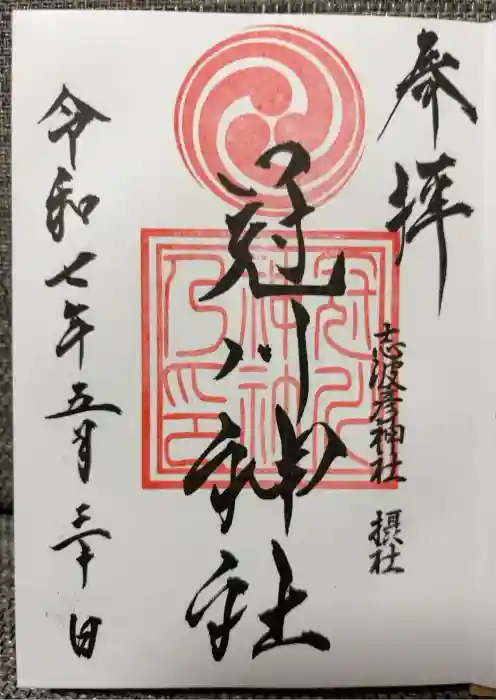 奉拝
志波彦神社 摂社
冠川神社
令和七年五月三十日